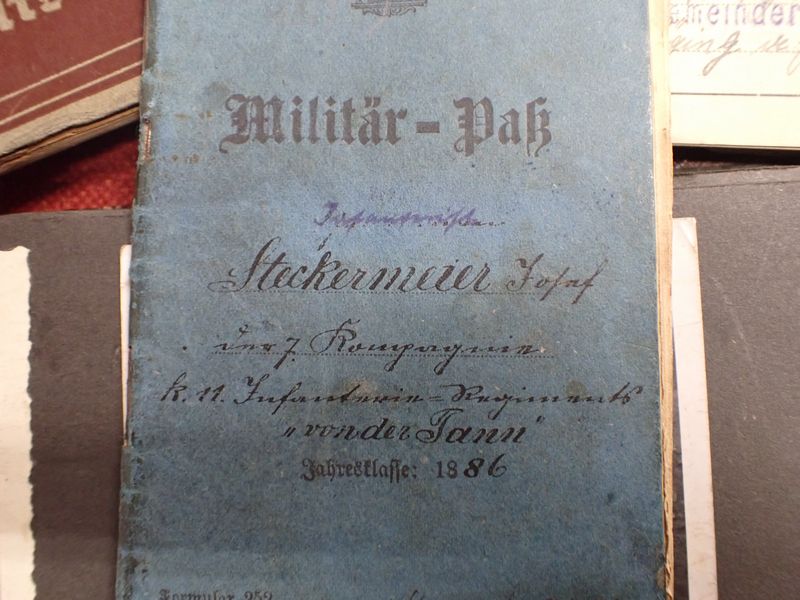 Militär-Paß
Infanterist
Steckermeier Josef
der 7. Kompagnie
k. 11. Infanterie-Regiments
"von der Tann"
Jahresklasse: 1886
Formular 252